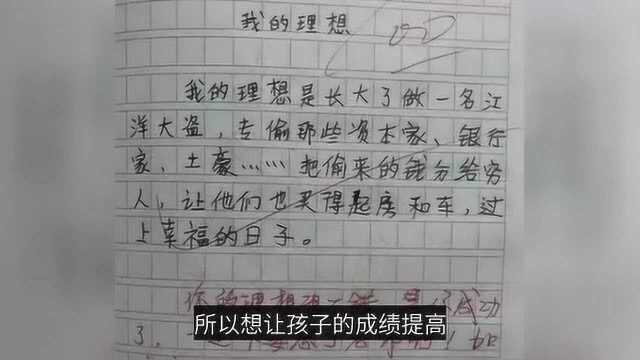 我的理想
我的理想是长大了做一名江
洋大盗，专偷那些资本家、银行
家、土豪……把偷来的钱分给穷
人，让他们也买得起房和车，过
上幸福的日子。
你的理想 成功
所以想让孩子的成绩提高
了，